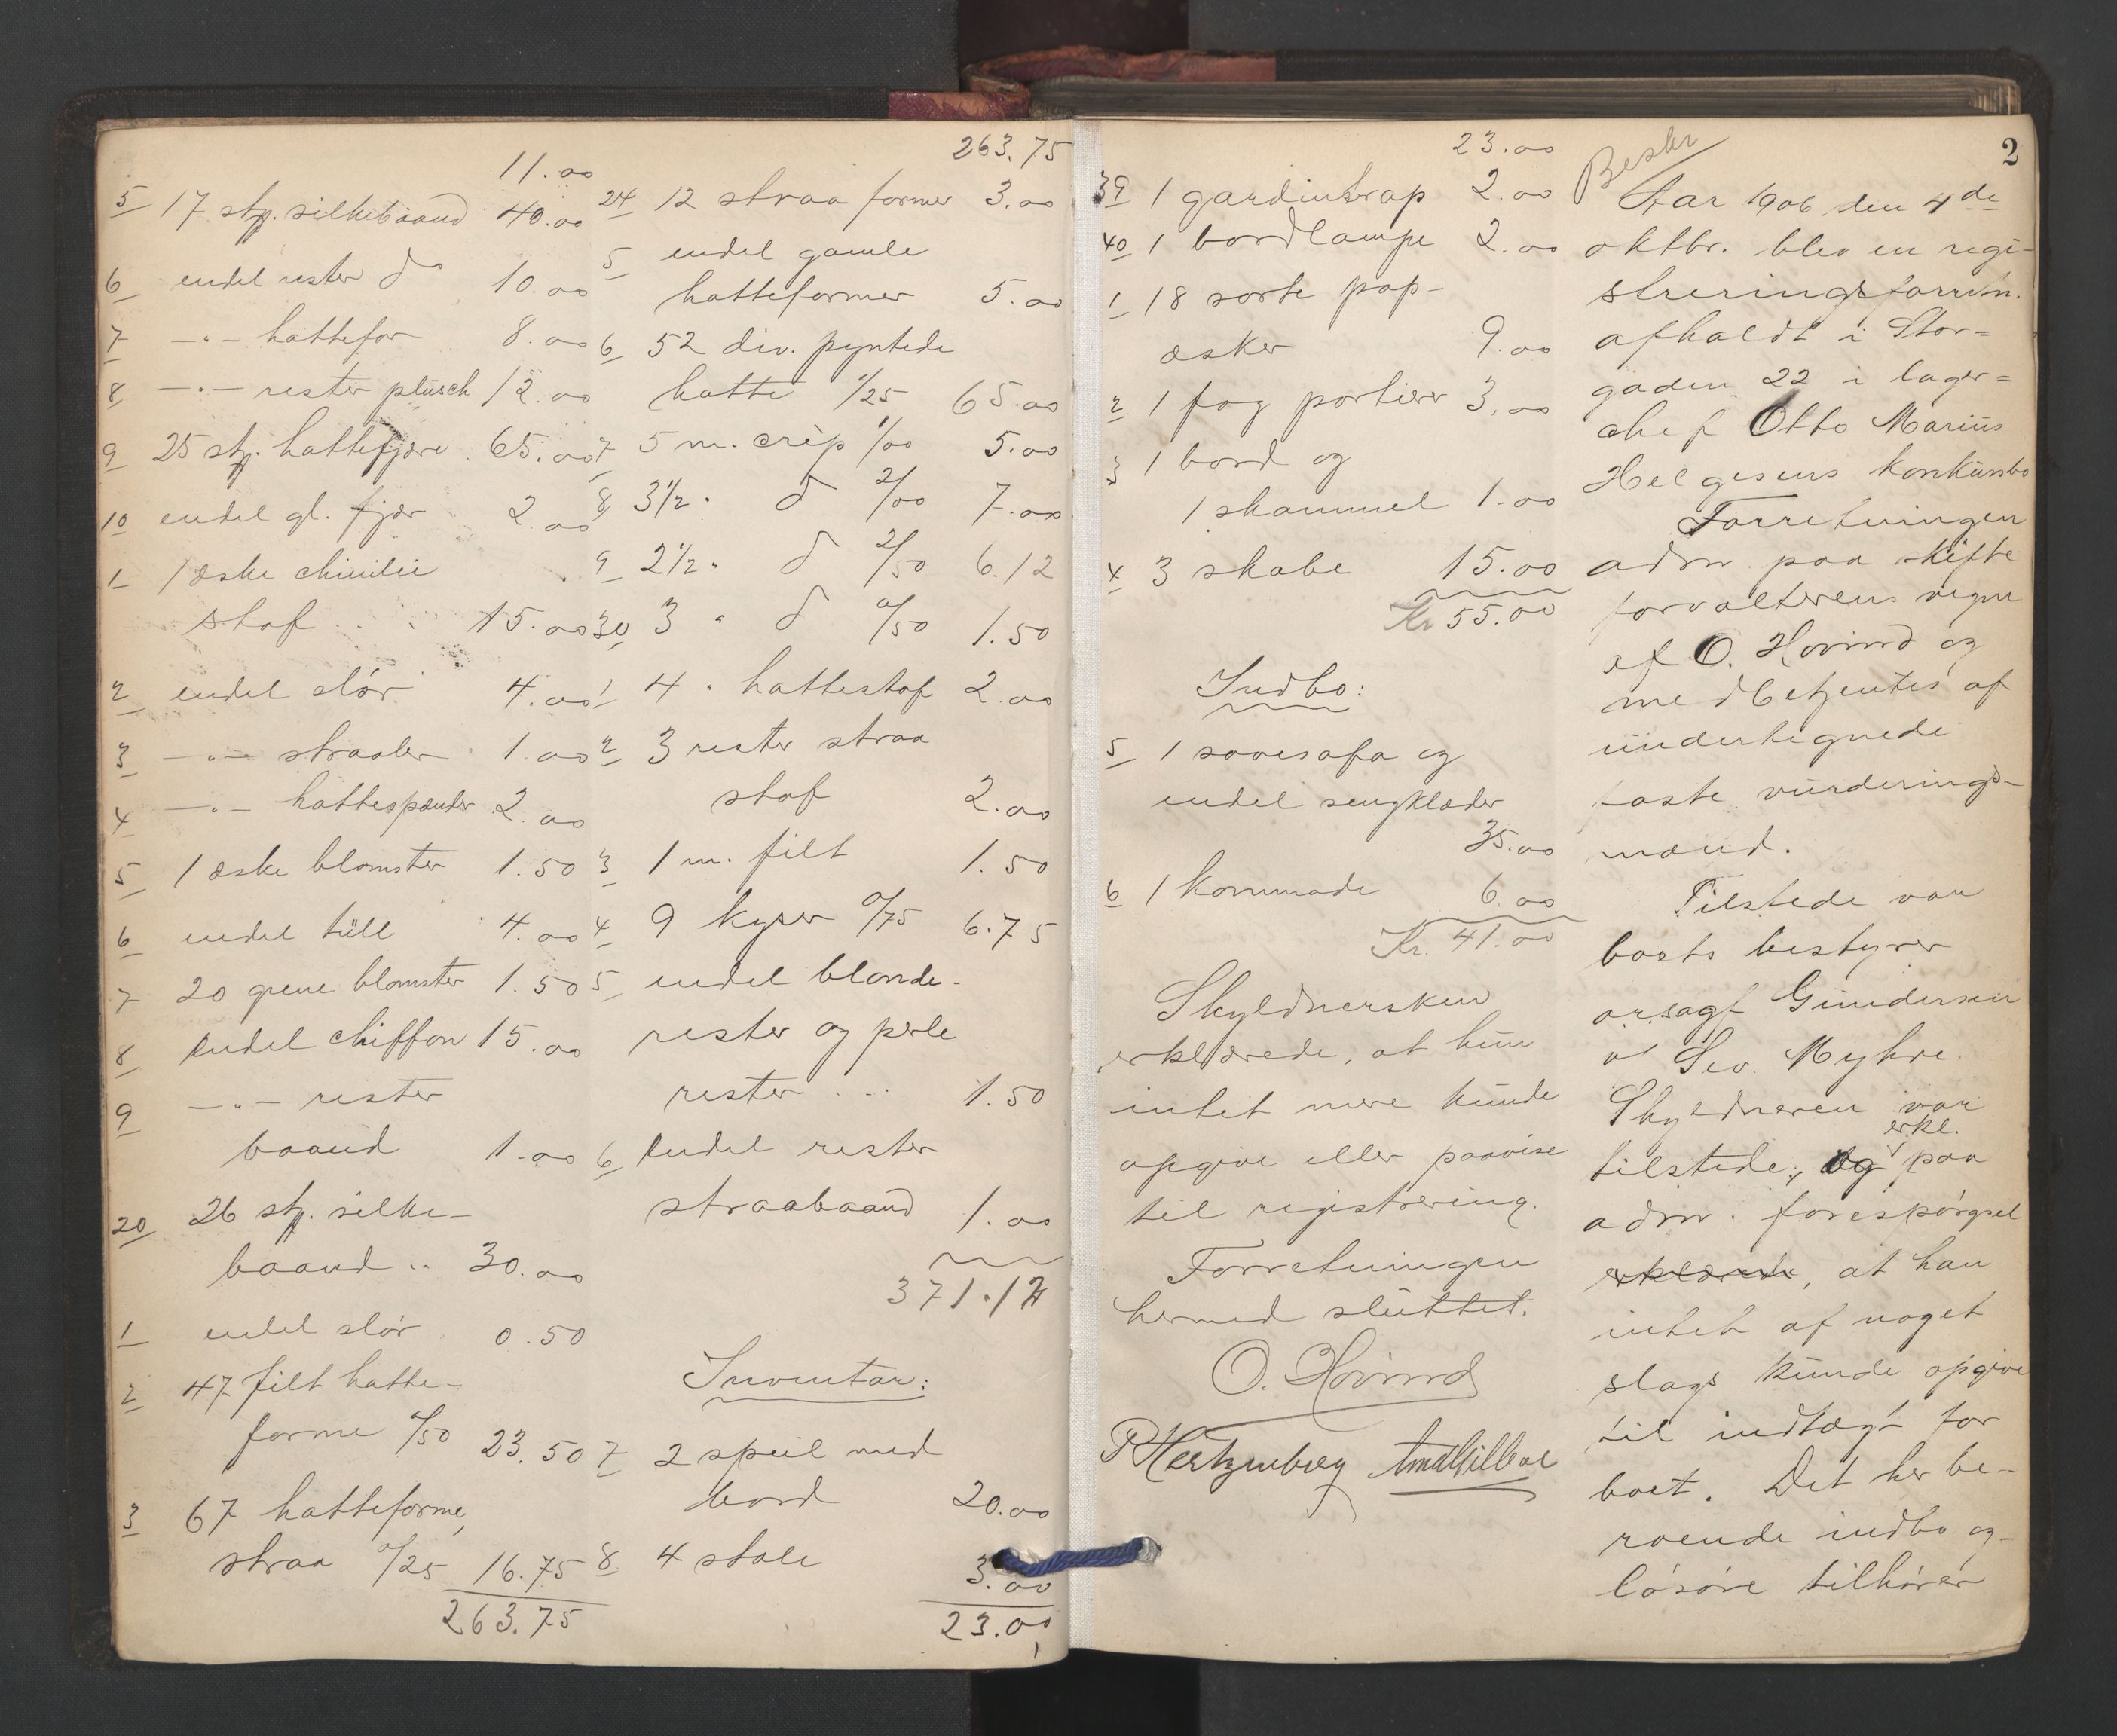 11.00
5 17 stp. silkebaand 40.00
6 endel rester do 10.00
7 —"— hattefor 8.00
8 —"— rester plüsch 12.00
9 25 stp. hattefjære 65.00
10 endel gl. fjær 2.00
1 1 æske
stof . . 15.00
2 endel slör 4.00
3 —"— straaler 1.00
4 —"— hattespænder 2.00
5 1 æske blomster 1.50
6 endel tüll 4.00
7 20 grene blomster 1.50
8 Endel chiffon 15.00
9 —"— rester
baand 1.00
20 26 stp. silke-
baand .. 30.00
1 endel slör 0.50
2 47 filt hatte-
forme 0/50 23.50
3 67 hatteforme,
straa 0/25 16.75
263.75
263.75
24 12 straa former 3.00
5 endel gamle
hatteformer 5.00
6 52 div. pyntede
hatte 1/25 65.00
7 5 m. crèp 1/00 5.00
8 3½ " do 2/00 7.00
9 2½ " do 2/50 6.12
30 3 " do 0/50 1.50
1 4 " hattestof 2.00
2 3 rester straa
stof 2.00
3 1 m. filt 1.50
4 9 kyser 0/75 6.75
5 endel blonde-
rester og perle
rester . .. 1.50
6 Endel rester
straabaand 1.00
371.12
Inventar:
7 2 speil med
bord 20.00
8 4 stole 3.00
23.00
23.00
39 1 gardintrap 2.00
40 1 bordlampe 2.00
1 18 sorte pap-
æsker 9.00
2 1 fag portierer 3.00
3 1 bord og
1 skammel 1.00
4 3 skabe 15.00
Kr 55.00
Indbo:
5 1 sovesofa og
endel sengklæder
35.00
6 1 kommode 6.00
Kr. 41.00
Skyldnersken
erklærede, at hun
intet mere kunde
opgive eller paavise
til registrering.
Forretningen
hermed sluttet.
O. Hovind
P Hertzenberg
2
Beskr
Aar 1906 den 4de
oktbr. blev en regi-
streringsforretn.
afholdt i Stor=
gaden 22 i lager=
chef Otto Marius
Helgesens konkursbo
Forretningen
adm. paa skifte
forvalterens vegne
af O. Hovind og
medbetjentes af
undertegnede
faste vurderings-
mænd.
Tilstede var
boets bestyrer
orsagf Gundersen
v/ Sev. Myhre.
Skyldneren var
erkl.
tilstede, og paa
adm. forespörgsel
erklærede, at han
intet af noget
slags kunde opgive
til indtægt for
boet. Det her be-
roende indbo og
lösöre tilhörer